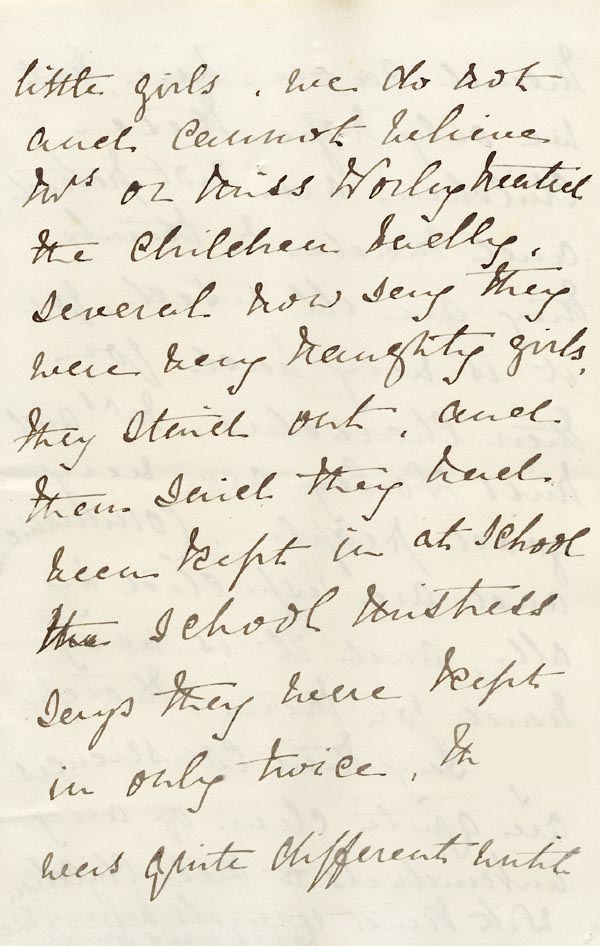 little girls. we do not
and cannot believe
Mrs or Miss Worby treated
the children cruelly.
several now say they
were very naughty girls,
they staid out, and
then said they had
been kept in at School
the School Mistress
says they were kept
in only twice.
was quite different until